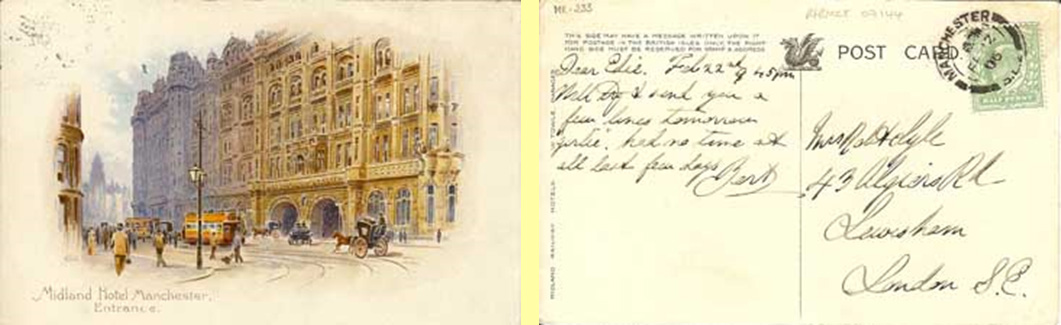 Midland Hotel Manchester.
Entrance.
THIS SIDE MAY HAVE A MESSAGE WRITTEN UPON IT
FOR POSTAGE IN THE BRITISH ISLES ONLY. THE RIGHT
HAND SIDE MUST BE RESERVED FOR STAMP & ADDRESS
POST CARD.
MANCHESTER
06
HALF PENNY
Dear Elsie. Feb 22nd 9.45pm
Will try & send you a
few lines tomorrow
girlie. had no time at
all last few days Bert
43 Algiers Rd
Lewisham
London S.E.
MIDLAND RAILWAY HOTELS.